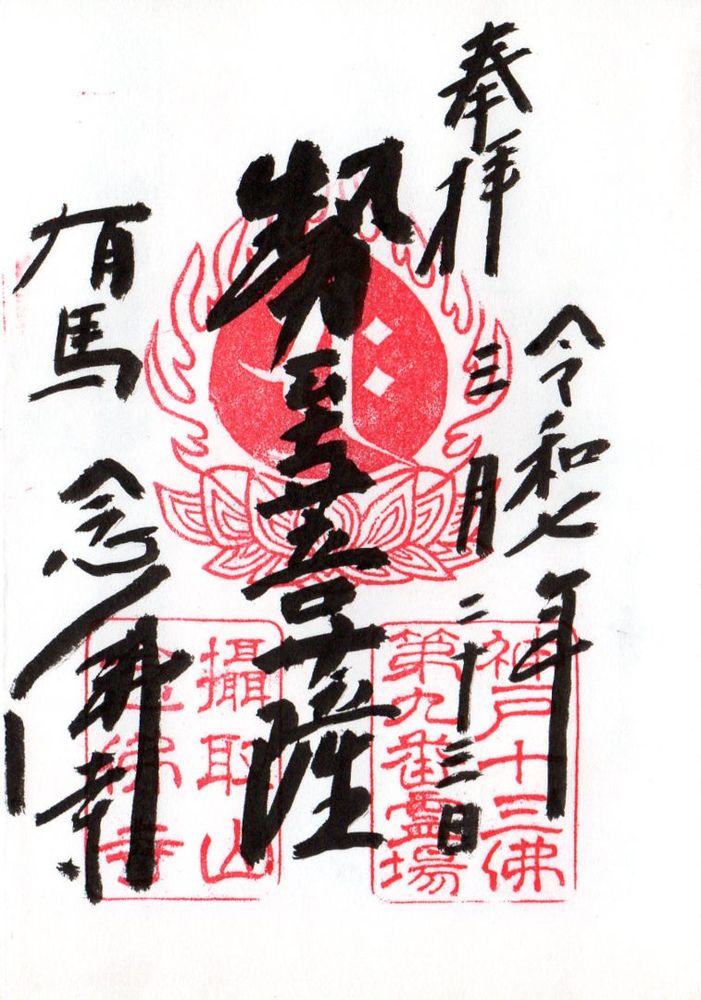 奉拝
令和七年
三月二十三日
勢至菩薩
有馬 念佛寺
神戸十三佛
第九番霊場
攝取山
念佛寺